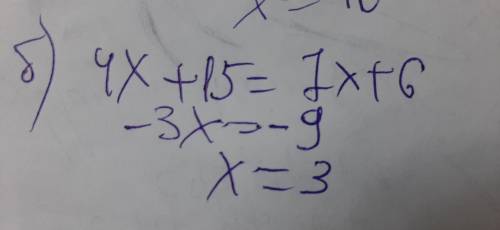 б) 4x + 15 = 7x + 6
-3x = -9
x = 3